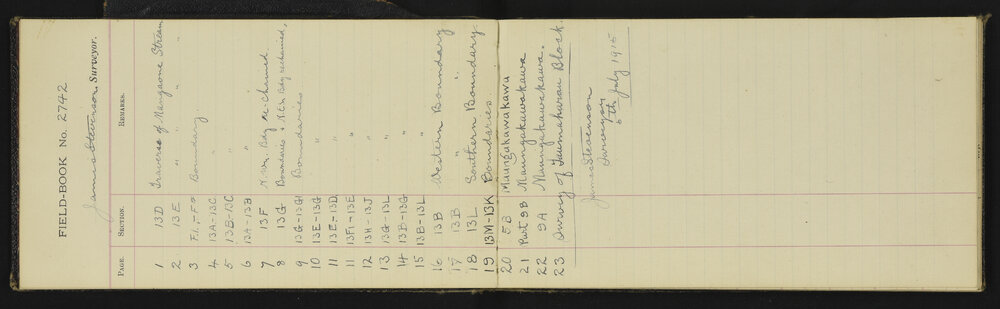 FIELD-BOOK No. 2742
James Stevenson, Surveyor.
PAGE. SECTION. REMARKS.
1 13D Traverse of Mangaone Stream
2 13E " " "
3 Boundary
4 13A-13C "
5 13B-13C "
6 13A-13B "
7 13F N.Wn. Bdy re-chained.
8 13G Boundaries & N.En Bdy rechained.
9 13G-13H Boundaries
10 13E-13G "
11 13E-13D "
11 13F1-13E "
12 13H-13J "
13 13G-13L "
14 13B-13G "
15 13B-13L "
16 13B Western Boundary
17 13B " "
18 13L Southern Boundary.
19 13M-13K Boundaries.
20 5B Maungakawakawa
21 Part 9B Maungakawakawa
22 9A Maungakawakawa.
23 Survey of Taumakurau Block.
James Stevenson
Surveyor
6th July 1915